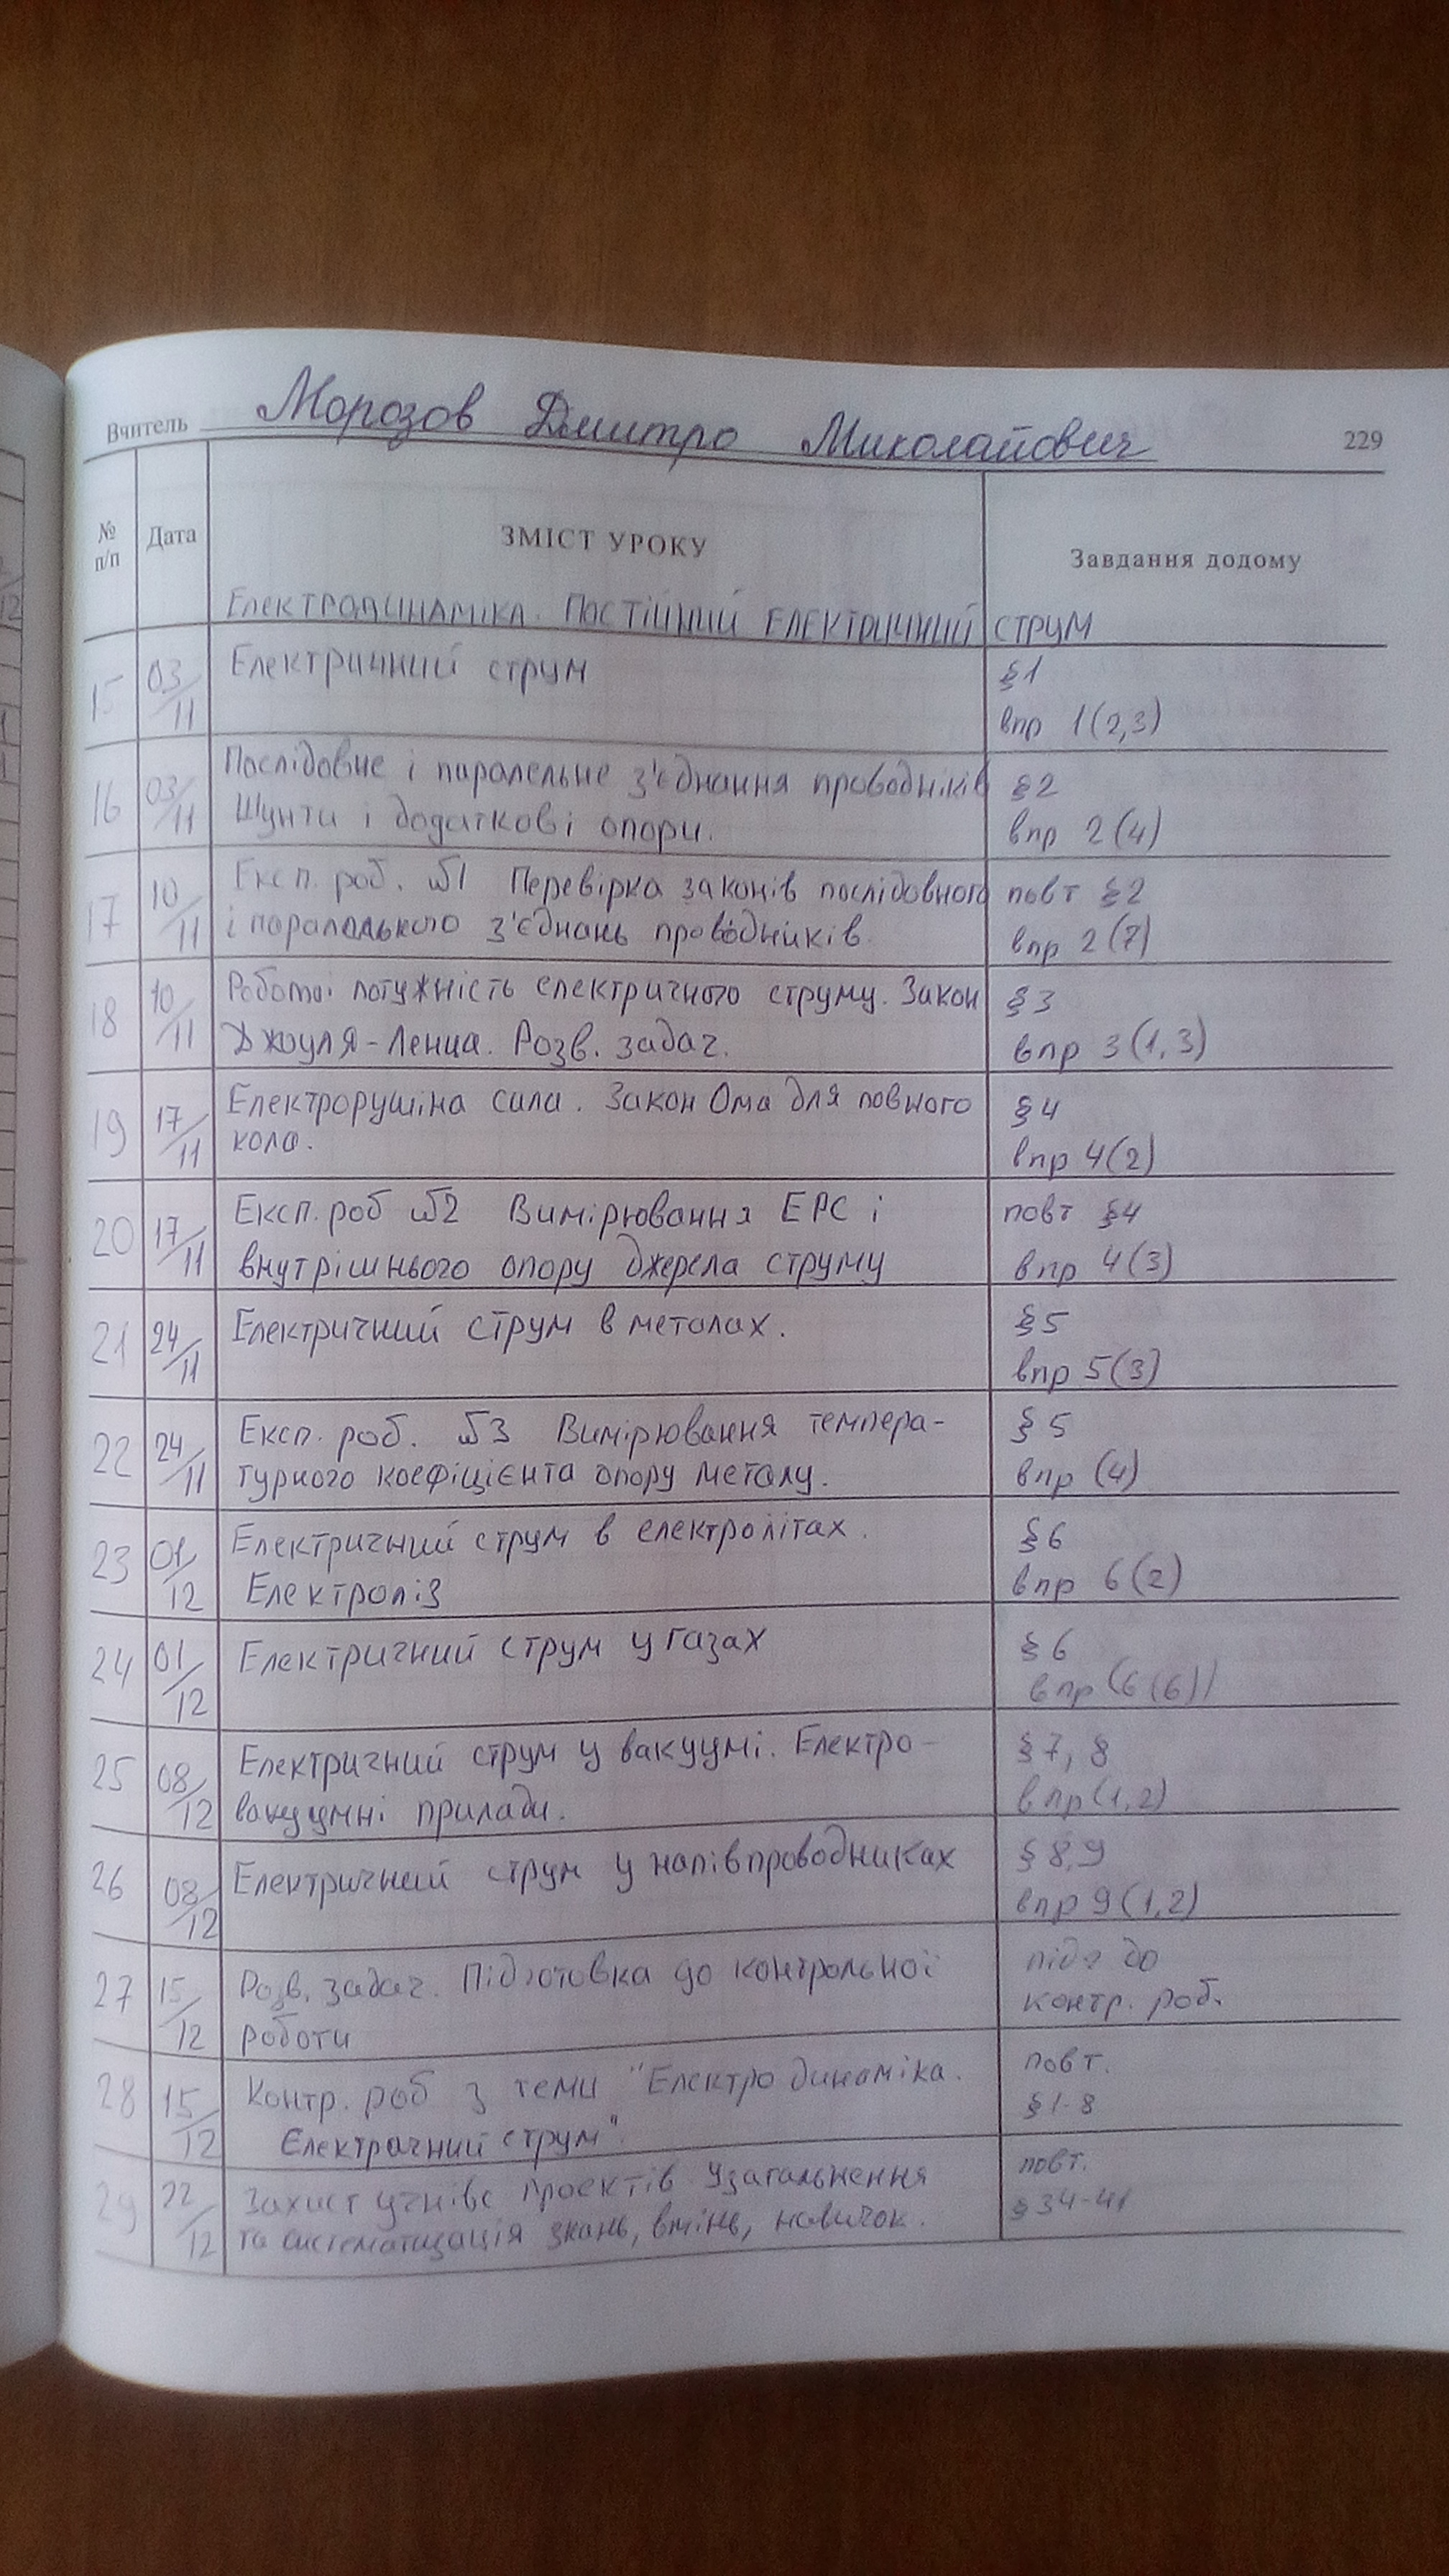 Вчитель Морозов Дмитро Миколайович 229
№ п/п Дата ЗМІСТ УРОКУ Завдання додому
Електродинаміка. Постійний електричний струм
15 03/11 Електричний струм §1
впр 1(2,3)
16 03/11 Послідовне і паралельне з'єднання провідників §2
Шунти і додаткові опори. впр 2(4)
17 10/11 Експ. роб. №1 Перевірка законів послідовного повт §2
і паралельного з'єднань провідників. впр 2(7)
18 10/11 Робота і потужність електричного струму. Закон §3
Джоуля-Ленца. Розв. задач. впр 3(1,3)
19 17/11 Електрорушійна сила. Закон Ома для повного §4
кола. впр 4(2)
20 17/11 Експ. роб №2 Вимірювання ЕРС і повт §4
внутрішнього опору джерела струму впр 4(3)
21 24/11 Електричний струм в металах. §5
впр 5(3)
22 24/11 Експ. роб. №3 Вимірювання темпера- §5
турного коефіцієнта опору металу. впр (4)
23 01/12 Електричний струм в електролітах. §6
Електроліз впр 6(2)
24 01/12 Електричний струм у газах §6
впр (6(6))
25 08/12 Електричний струм у вакуумі. Електро- §7, 8
вакуумні прилади. впр (1,2)
26 08/12 Електричний струм у напівпроводниках §8,9
впр 9(1,2)
27 15/12 Розв. задач. Підготовка до контрольної підг до
роботи контр. роб.
28 15/12 Контр. роб з теми "Електродинаміка. повт.
Електричний струм". §1-8
29 22/12 Захист учнівс проектів Узагальнення повт.
та систематизація знань, вмінь, навичок. §34-41